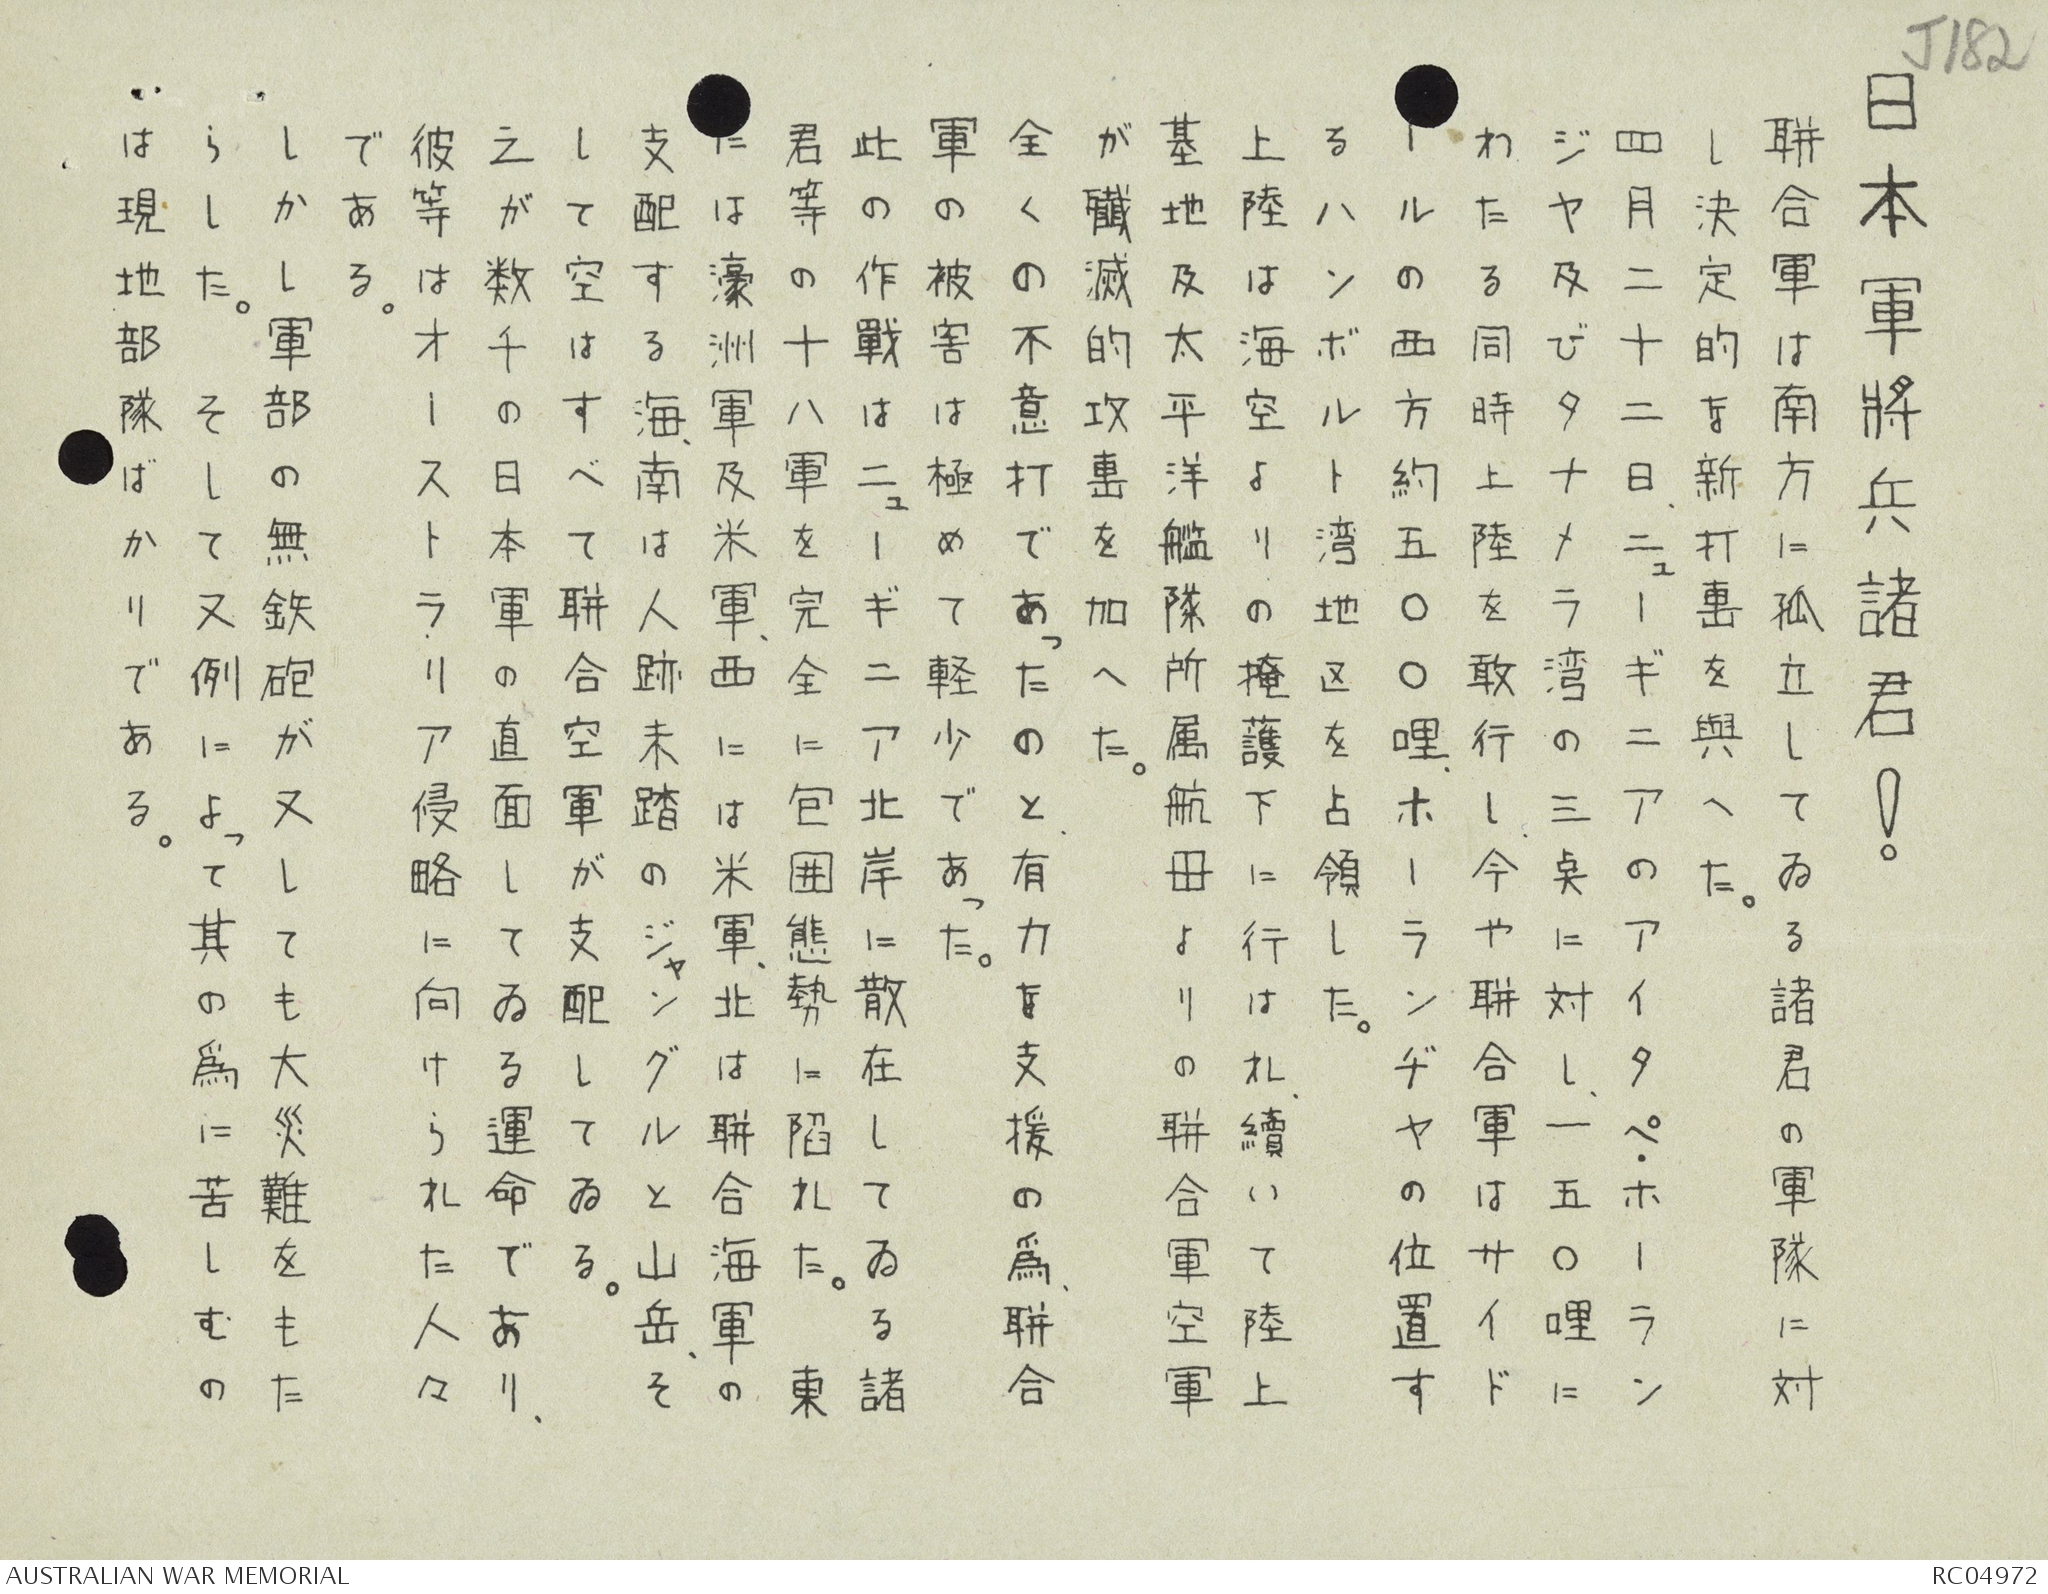 J182
日本軍將兵諸君!
聨合軍は南方に孤立してゐる諸君の軍隊に対
し決定的な新打擊を與へた。
四月二十二日、ニューギニアのアイタペ・ホーラン
ジヤ及びタナメラ湾の三奌に対し、一五〇哩に
わたる同時上陸を敢行し、今や聨合軍はサイド
ールの西方約五〇〇哩、ホーランヂヤの位置す
るハンボルト湾地区を占領した。
上陸は海空よりの掩護下に行はれ、續いて陸上
基地及太平洋艦隊所属航母よりの聨合軍空軍
が殲滅的攻擊を加へた。
全くの不意打であったのと、有力な支援の爲、聨合
軍の被害は極めて軽少であった。
此の作戰はニューギニア北岸に散在してゐる諸
君等の十八軍を完全に包囲態勢に陷れた。 東
には濠洲軍及米軍、西には米軍、北は聨合海軍の
支配する海、南は人跡未踏のジャングルと山岳、そ
して空はすべて聨合空軍が支配してゐる。
之が数千の日本軍の直面してゐる運命であり、
彼等はオーストラリア侵略に向けられた人々
である。
しかし軍部の無鉄砲が又しても大災難をもた
らした。 そして又例によって其の爲に苦しむの
は現地部隊ばかりである。
AUSTRALIAN WAR MEMORIAL
RC04972